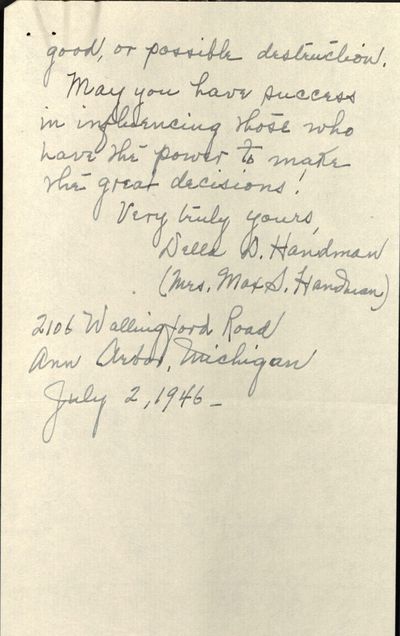 good, or possible destruction.
May you have success
in influencing those who
have the power to make
the great decisions!
Very truly yours,
Della D. Handman
(Mrs. Max S. Handman)
2106 Wallingford Road
Ann Arbor, Michigan
July 2, 1946 –